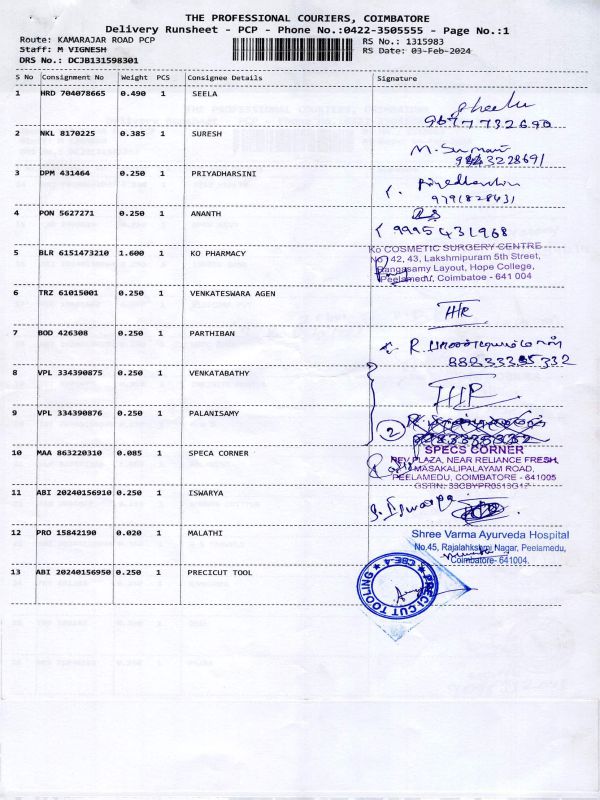 THE PROFESSIONAL COURIERS, COIMBATORE
Delivery Runsheet - PCP - Phone No.:0422-3505555 - Page No.:1
Route: KAMARAJAR ROAD PCP
RS No.: 1315983
Staff: M VIGNESH
RS Date: 03-Feb-2024
DRS No.: DCJB131598301
S No Consignment No Weight PCS Consignee Details Signature
1 HRD 704078665 0.490 1 SEELA
2 NKL 8170225 0.385 1 SURESH
3 DPM 431464 0.250 1 PRIYADHARSINI
9791828431
4 PON 5627271 0.250 1 ANANTH
9995431968
5 BLR 6151473210 1.600 1 KO PHARMACY
Ko COSMETIC SURGERY CENTRE
No 42, 43, Lakshmipuram 5th Street,
Rangasamy Layout, Hope College,
Peelamedu, Coimbatoe - 641 004
6 TRZ 61015001 0.250 1 VENKATESWARA AGEN
7 BOD 426308 0.250 1 PARTHIBAN
8 VPL 334390875 0.250 1 VENKATABATHY
9 VPL 334390876 0.250 1 PALANISAMY
2
10 MAA 863220310 0.085 1 SPECA CORNER
SPECS CORNER
REV PLAZA, NEAR RELIANCE FRESH,
MASAKALIPALAYAM ROAD,
PEELAMEDU, COIMBATORE - 641005
11 ABI 20240156910 0.250 1 ISWARYA
S. Iswarya
12 PRO 15842190 0.020 1 MALATHI
Shree Varma Ayurveda Hospital
No.45, Rajalahkshmi Nagar, Peelamedu,
Coimbatore- 641004.
13 ABI 20240156950 0.250 1 PRECICUT TOOL
PRECI CUT TOOLING
CBE-4